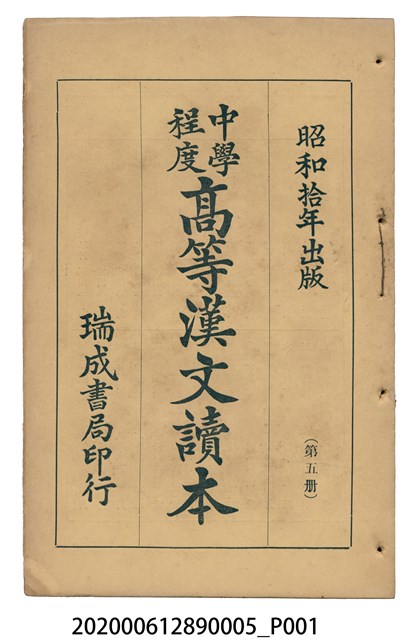 昭和拾年出版
（第五册）
中學
程度
高等漢文讀本
瑞成書局印行
202000612890005_P001